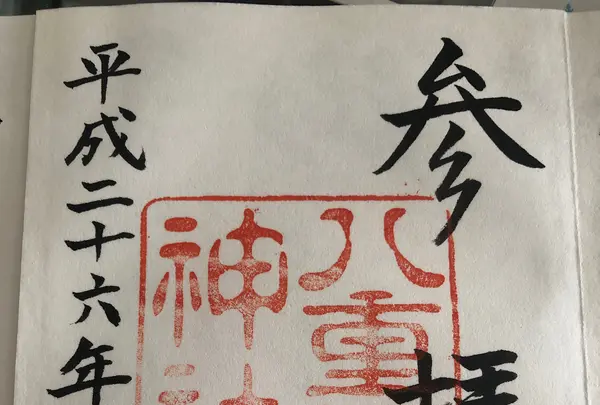 参拝
八重
神社
平成二十六年